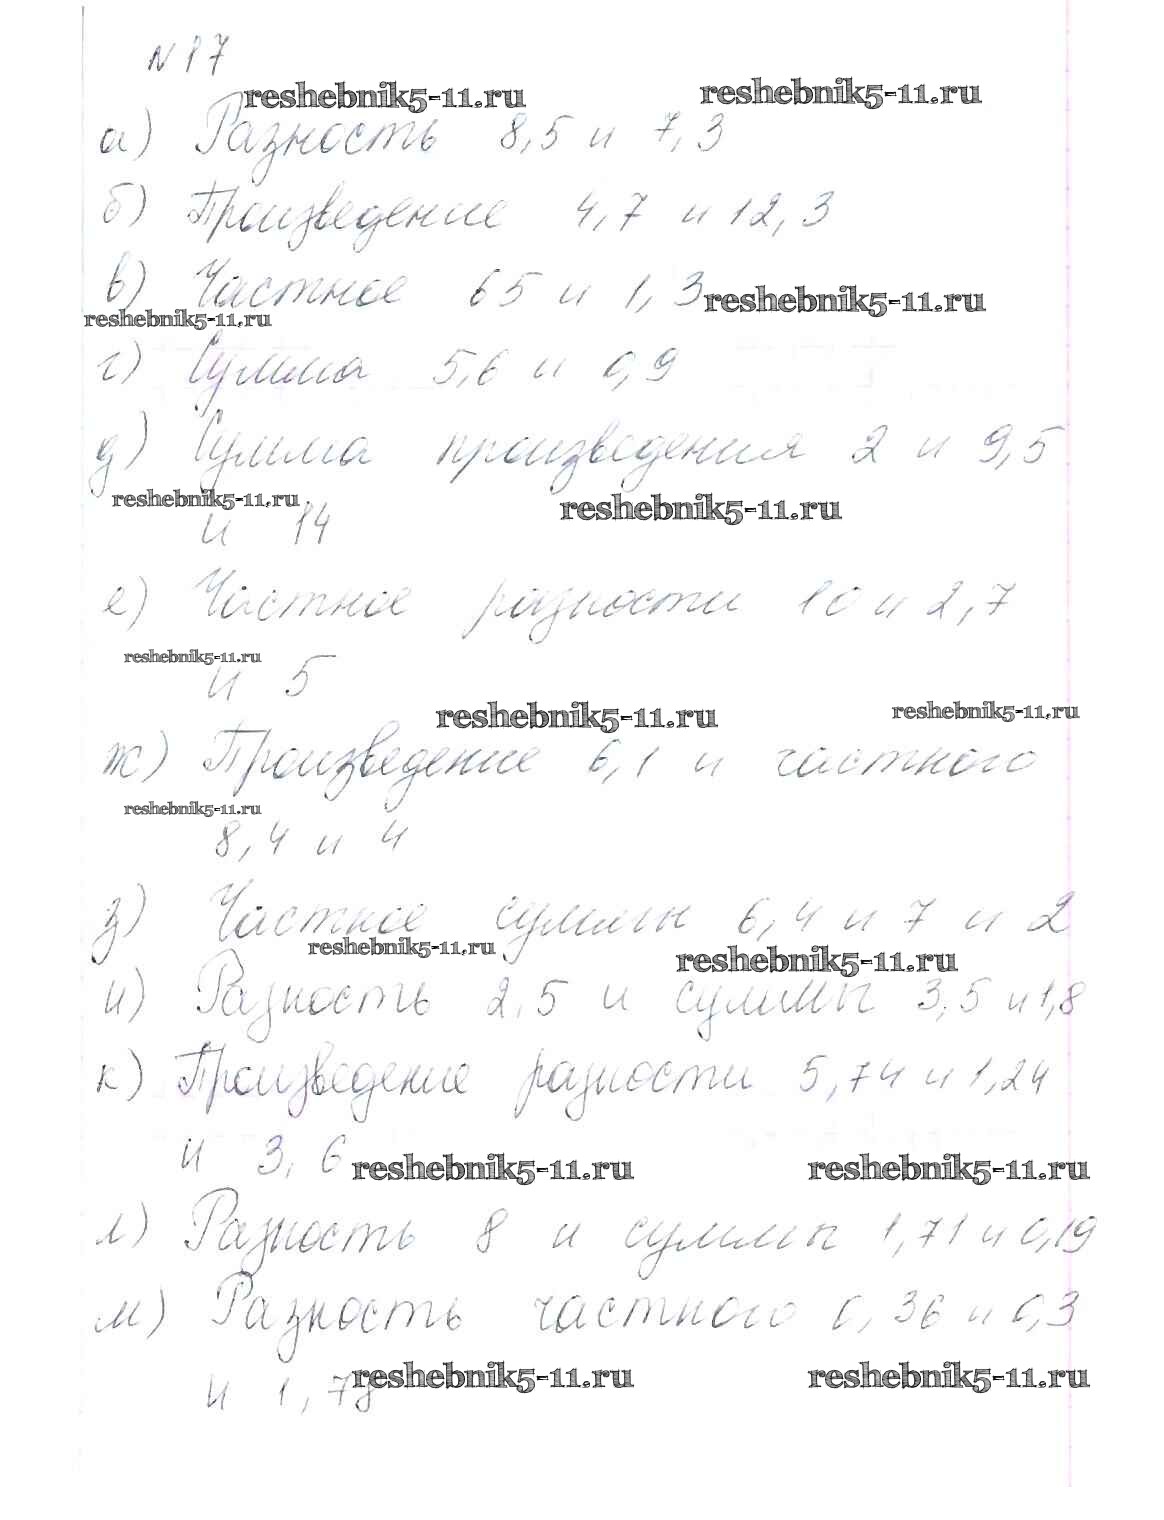 N 17
reshebnik5-11.ru reshebnik5-11.ru
а) Разность 8,5 и 7,3
б) Произведение 4,7 и 12,3
в) Частное 65 и 1,3 reshebnik5-11.ru
reshebnik5-11.ru
г) Сумма 5,6 и 0,9
д) Сумма произведения 2 и 9,5
reshebnik5-11.ru reshebnik5-11.ru
и 14
е) Частное разности 10 и 2,7
reshebnik5-11.ru
и 5
reshebnik5-11.ru reshebnik5-11.ru
ж) Произведение 6,1 и частного
reshebnik5-11.ru
8,4 и 4
з) Частное суммы 6,4 и 7 и 2
reshebnik5-11.ru reshebnik5-11.ru
и) Разность 2,5 и суммы 3,5 и 1,8
к) Произведение разности 5,74 и 1,24
и 3,6 reshebnik5-11.ru reshebnik5-11.ru
л) Разность 8 и суммы 1,71 и 0,19
м) Разность частного 0,36 и 0,3
и 1,78 reshebnik5-11.ru reshebnik5-11.ru